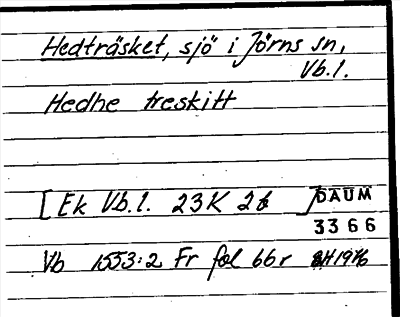 Hedträsket, sjö i Jörns sn,
Vb.l.
Hedhe treskitt
[Ek Vb.l. 23K 2b ] DAUM
3366
Vb 1553:2 Fr fol 66r 1976